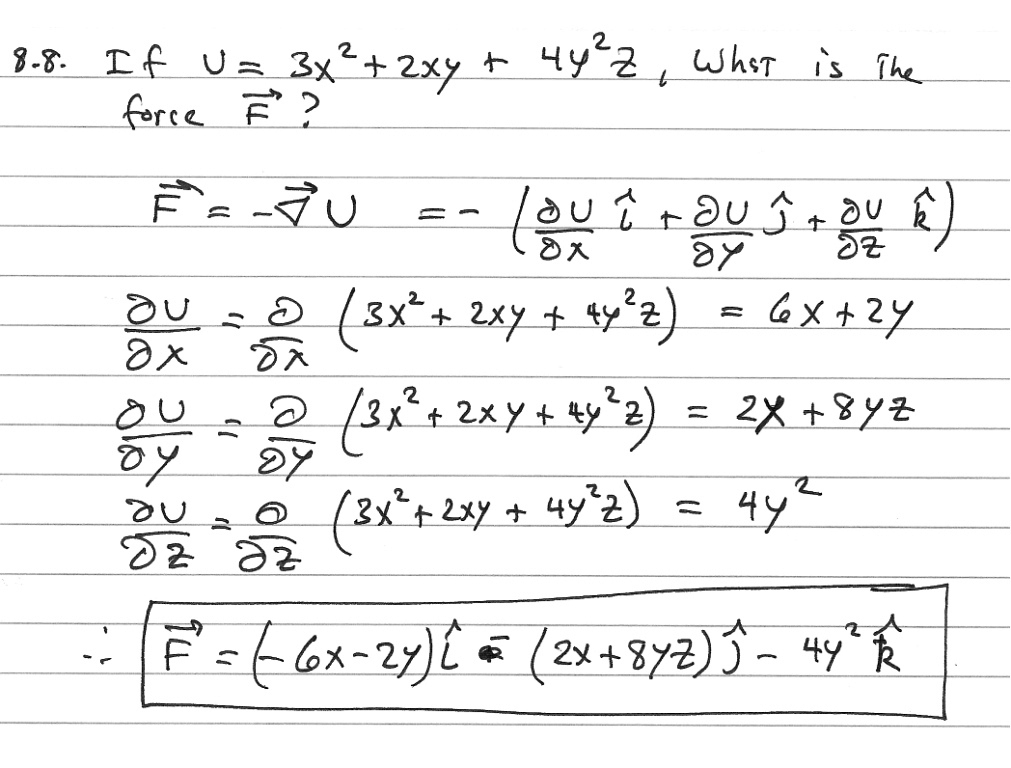 8-8. If U = 3x² + 2xy + 4y²z, What is The
force F⃗ ?
F⃗ = -∇⃗U = - (∂U/∂x î + ∂U/∂y ĵ + ∂U/∂z k̂)
∂U/∂x = ∂/∂x (3x² + 2xy + 4y²z) = 6x + 2y
∂U/∂y = ∂/∂y (3x² + 2xy + 4y²z) = 2x + 8yz
∂U/∂z = ∂/∂z (3x² + 2xy + 4y²z) = 4y²
∴ F⃗ = (-6x-2y)î - (2x+8yz)ĵ - 4y² k̂